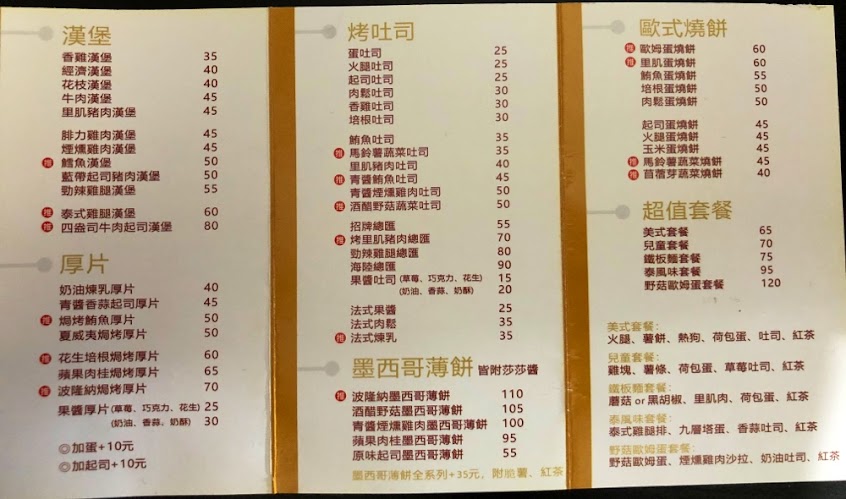 漢堡
香雞漢堡 35
經濟漢堡 40
花枝漢堡 40
牛肉漢堡 45
里肌豬肉漢堡 45
腓力雞肉漢堡 45
煙燻雞肉漢堡 45
推 鱈魚漢堡 50
藍帶起司豬肉漢堡 50
勁辣雞腿漢堡 55
推 泰式雞腿漢堡 60
推 四盎司牛肉起司漢堡 80
厚片
奶油煉乳厚片 40
青醬香蒜起司厚片 45
推 焗烤鮪魚厚片 50
夏威夷焗烤厚片 50
推 花生培根焗烤厚片 60
蘋果肉桂焗烤厚片 65
推 波隆納焗烤厚片 70
果醬厚片(草莓、巧克力、花生) 25
(奶油、香蒜、奶酥) 30
◎加蛋+10元
◎加起司+10元
烤吐司
蛋吐司 25
火腿吐司 25
起司吐司 25
肉鬆吐司 30
香雞吐司 30
培根吐司 30
鮪魚吐司 35
推 馬鈴薯蔬菜吐司 35
里肌豬肉吐司 40
推 青醬鮪魚吐司 45
青醬煙燻雞肉吐司 50
推 酒醋野菇蔬菜吐司 50
招牌總匯 55
推 烤里肌豬肉總匯 70
勁辣雞腿總匯 80
海陸總匯 90
果醬吐司(草莓、巧克力、花生) 15
(奶油、香蒜、奶酥) 20
法式果醬 25
法式肉鬆 35
推 法式煉乳 35
墨西哥薄餅 皆附莎莎醬
推 波隆納墨西哥薄餅 110
酒醋野菇墨西哥薄餅 105
青醬煙燻雞肉墨西哥薄餅 100
蘋果肉桂墨西哥薄餅 95
原味起司墨西哥薄餅 55
墨西哥薄餅全系列+35元，附脆薯、紅茶
歐式燒餅
推 歐姆蛋燒餅 60
推 里肌蛋燒餅 60
鮪魚蛋燒餅 55
培根蛋燒餅 50
肉鬆蛋燒餅 50
起司蛋燒餅 45
火腿蛋燒餅 45
玉米蛋燒餅 45
推 馬鈴薯蔬菜燒餅 45
推 苜蓿芽蔬菜燒餅 40
超值套餐
美式套餐 65
兒童套餐 70
鐵板麵套餐 75
泰風味套餐 95
野菇歐姆蛋套餐 120
美式套餐:
火腿、薯餅、熱狗、荷包蛋、吐司、紅茶
兒童套餐:
雞塊、薯條、荷包蛋、草莓吐司、紅茶
鐵板麵套餐:
蘑菇 or 黑胡椒、里肌肉、荷包蛋、紅茶
泰風味套餐:
泰式雞腿排、九層塔蛋、香蒜吐司、紅茶
野菇歐姆蛋套餐:
野菇歐姆蛋、煙燻雞肉沙拉、奶油吐司、紅茶